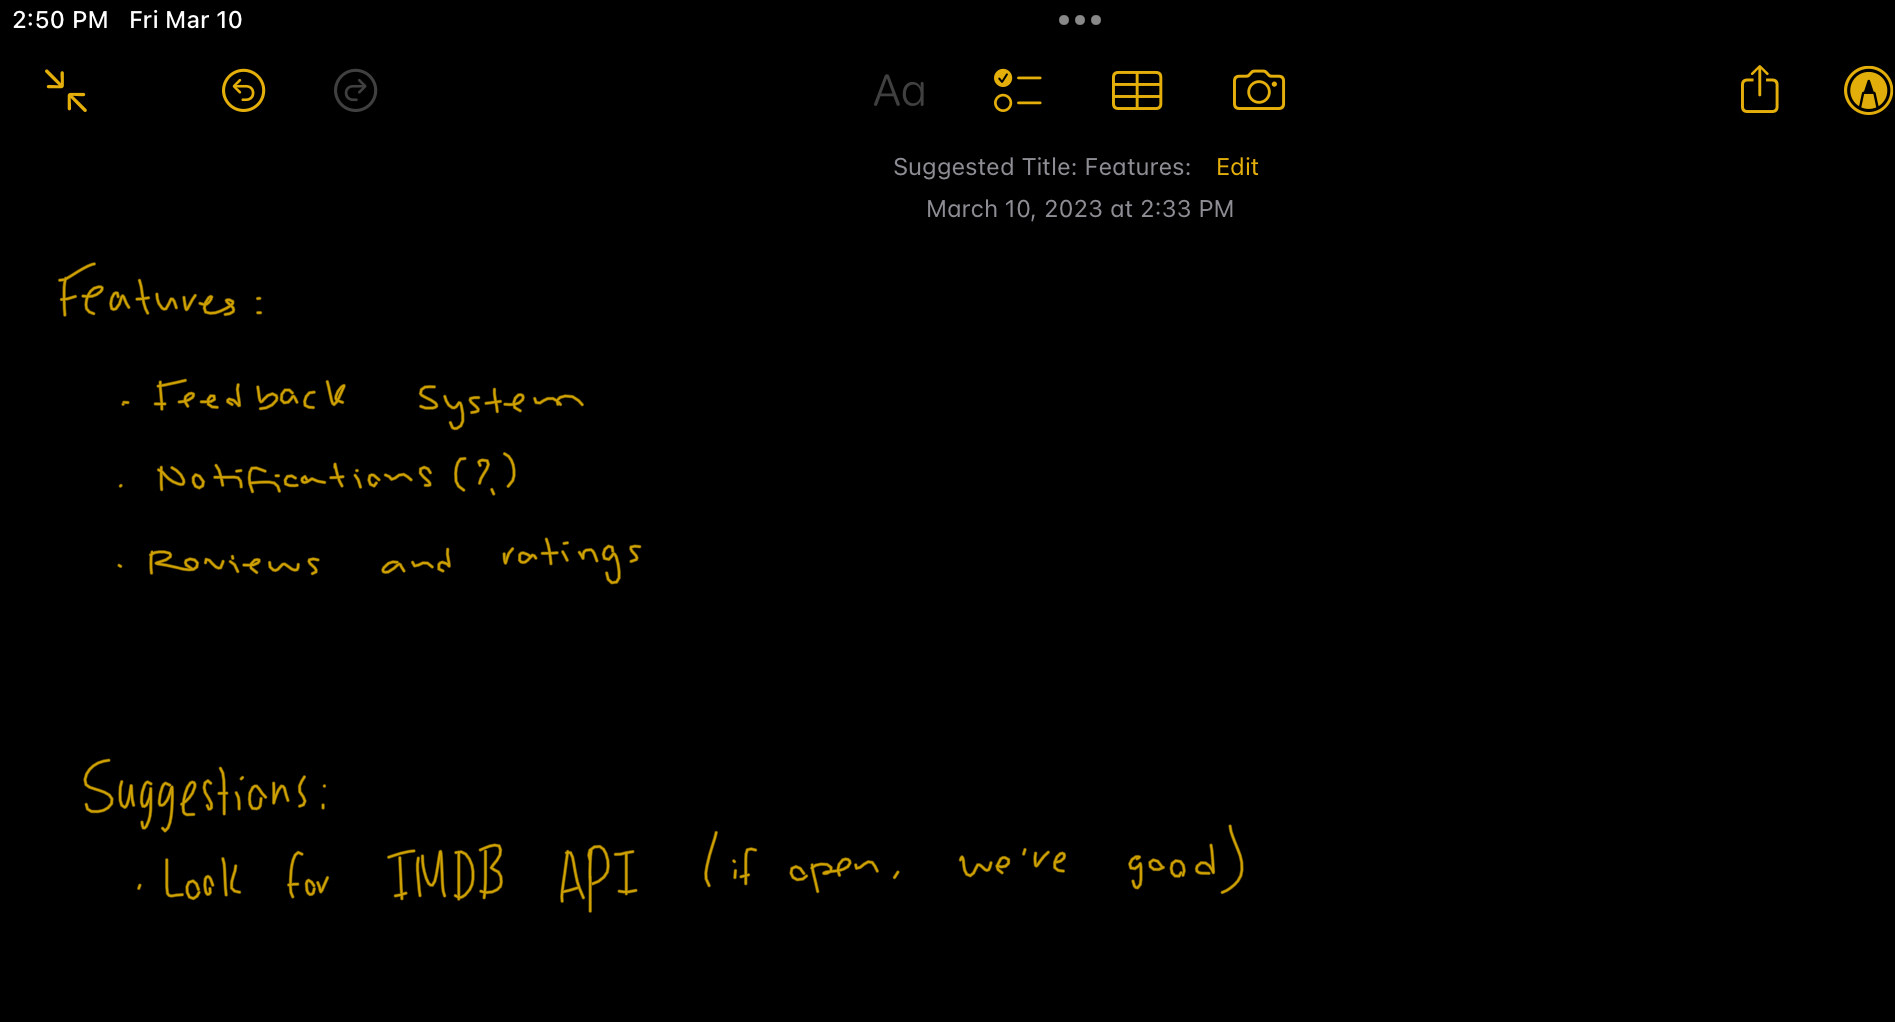 2:50 PM Fri Mar 10
Aa
Suggested Title: Features: Edit
March 10, 2023 at 2:33 PM
Features:
· Feedback System
· Notifications (?)
· Reviews and ratings
Suggestions:
· Look for IMDB API (if open, we've good)